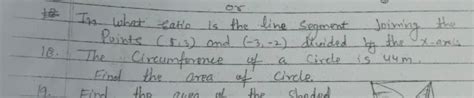 or
18. In what ratio is the line segment joining the
Points (5,3) and (-3,-2) divided by the x-axis
18. The Circumference of a Circle is 44m.
Find the area of Circle.
19. Find the area of the Shaded